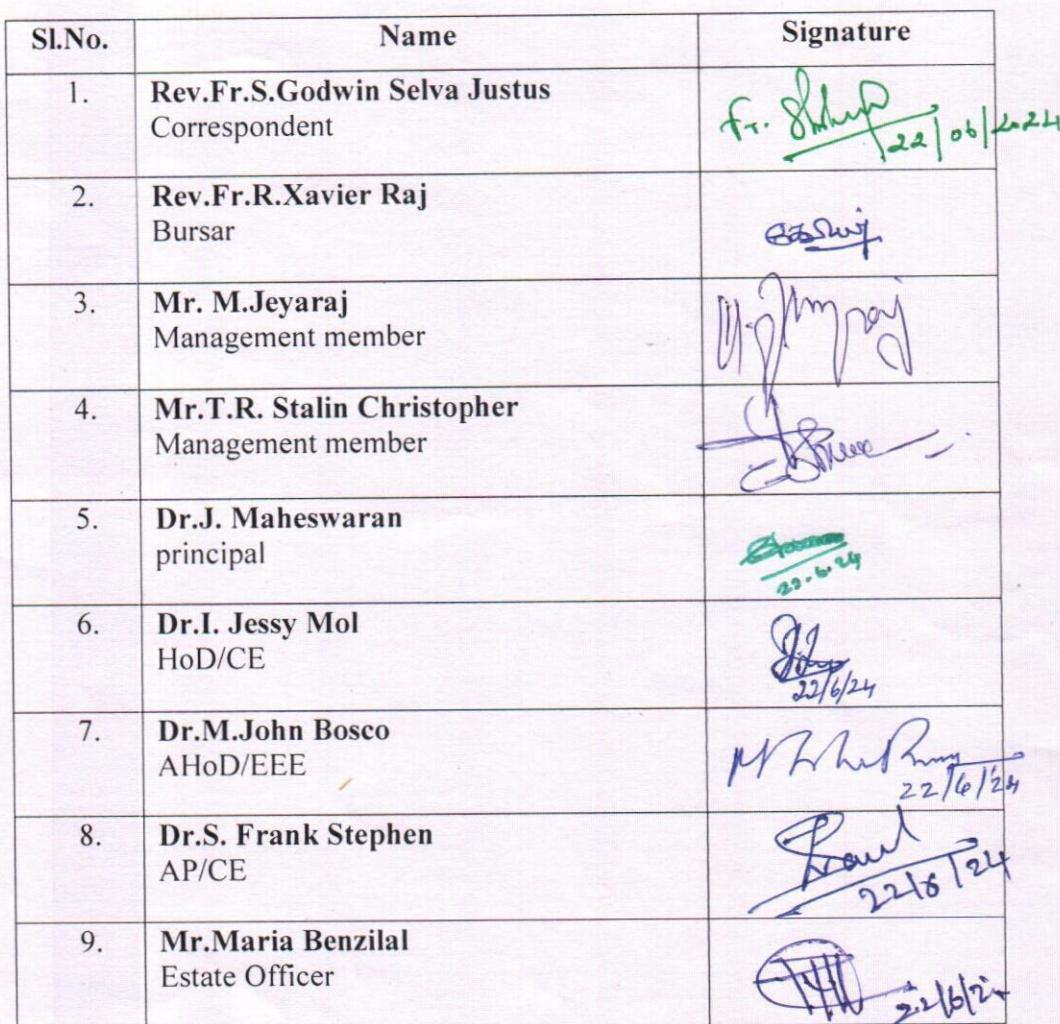 Sl.No. Name Signature
1. Rev.Fr.S.Godwin Selva Justus
Correspondent
Fr.
22/06/2024
2. Rev.Fr.R.Xavier Raj
Bursar
3. Mr. M.Jeyaraj
Management member
4. Mr.T.R. Stalin Christopher
Management member
5. Dr.J. Maheswaran
principal
22.6.24
6. Dr.I. Jessy Mol
HoD/CE
22/6/24
7. Dr.M.John Bosco
AHoD/EEE
22/6/24
8. Dr.S. Frank Stephen
AP/CE
22/6/24
9. Mr.Maria Benzilal
Estate Officer
22/6/24